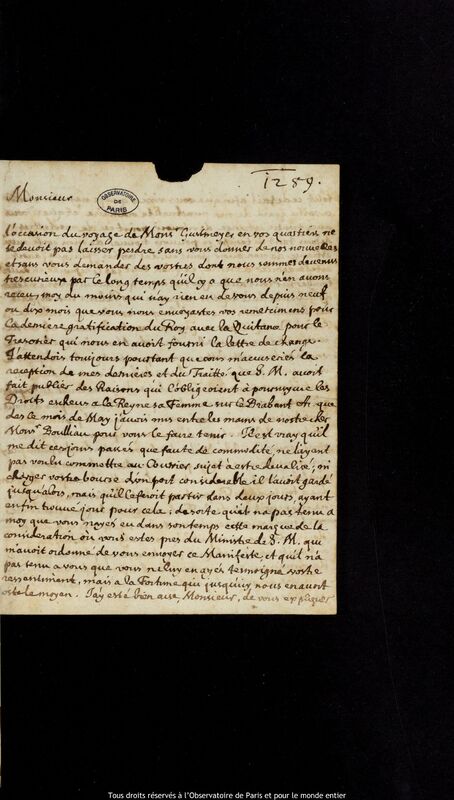 1259.
OBSERVATOIRE
DE
PARIS
Monsieur
l'occasion du voyage de Monsr en vos quartiers ne
se devoit pas laisser perdre sans vous donner de nos nouvelles
et sans vous demander des vostres dont nous sommes devenus
tres curieux par le long temps qu'il y a que nous n'en avons
receu, moy du moins qui n'ay rien eu de vous depuis neuf
ou dix mois que vous nous envoyastes vos remerciemens pour
la derniere gratification du Roy avec la Quitance pour le
Tresorier qui nous en avoit fourni la lettre de change.
J'attendois tousjours pourtant que vous m'accuseriés la
reception de mes dernieres et du Traitté que S. M. avoit
fait publier des Raisons qui l'obligeoient à poursuyvre les
Droits escheus a la Reyne sa Femme sur le Brabant &c. que
des le mois de May j'avois mis entre les mains de nostre cher
Monsr. Boulliau pour vous le faire tenir. Il est vray qu'il
me dit ces jours passés que faute de commodité ne l'ayant
pas voulu commettre au Courrier sujet a estre devalisé, ni
charger vostre bourse d'un port considerable il l'avoit gardé
jusqu'alors, mais qu'il le feroit partir dans deux jours, ayant
enfin trouvé jour pour cela; de sorte qu'il n'a pas tenu a
moy que vous n'ayés eu dans son temps cette marque de la
consideration où vous estes pres du Ministre de S. M. qui
m'avoit ordonné de vous envoyer ce Manifeste, et qu'il n'a
pas tenu a vous que vous ne luy en ayés tesmoigné vostre
ressentiment, mais a la Fortune qui jusqu'icy nous en avoit
osté le moyen. J'ay esté bien aise, Monsieur, de vous expliquer
Tous droits réservés à l'Observatoire de Paris et pour le monde entier